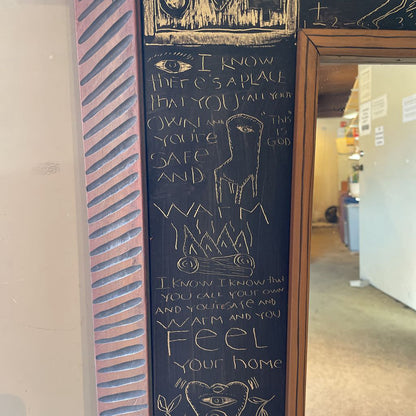 I KNOW
tHERE'S A PLACE
tHAt YOU CALL YOUR
OWN AND
"THIS
IS
GOD"
YOU'RE
SAFE
AND
WARM
I KNOW I KNOW tHAt
YOU CALL YOUR OWN
AND YOU'RE SAFE AND
WARM AND YOU
FEEL
YOUR HOME